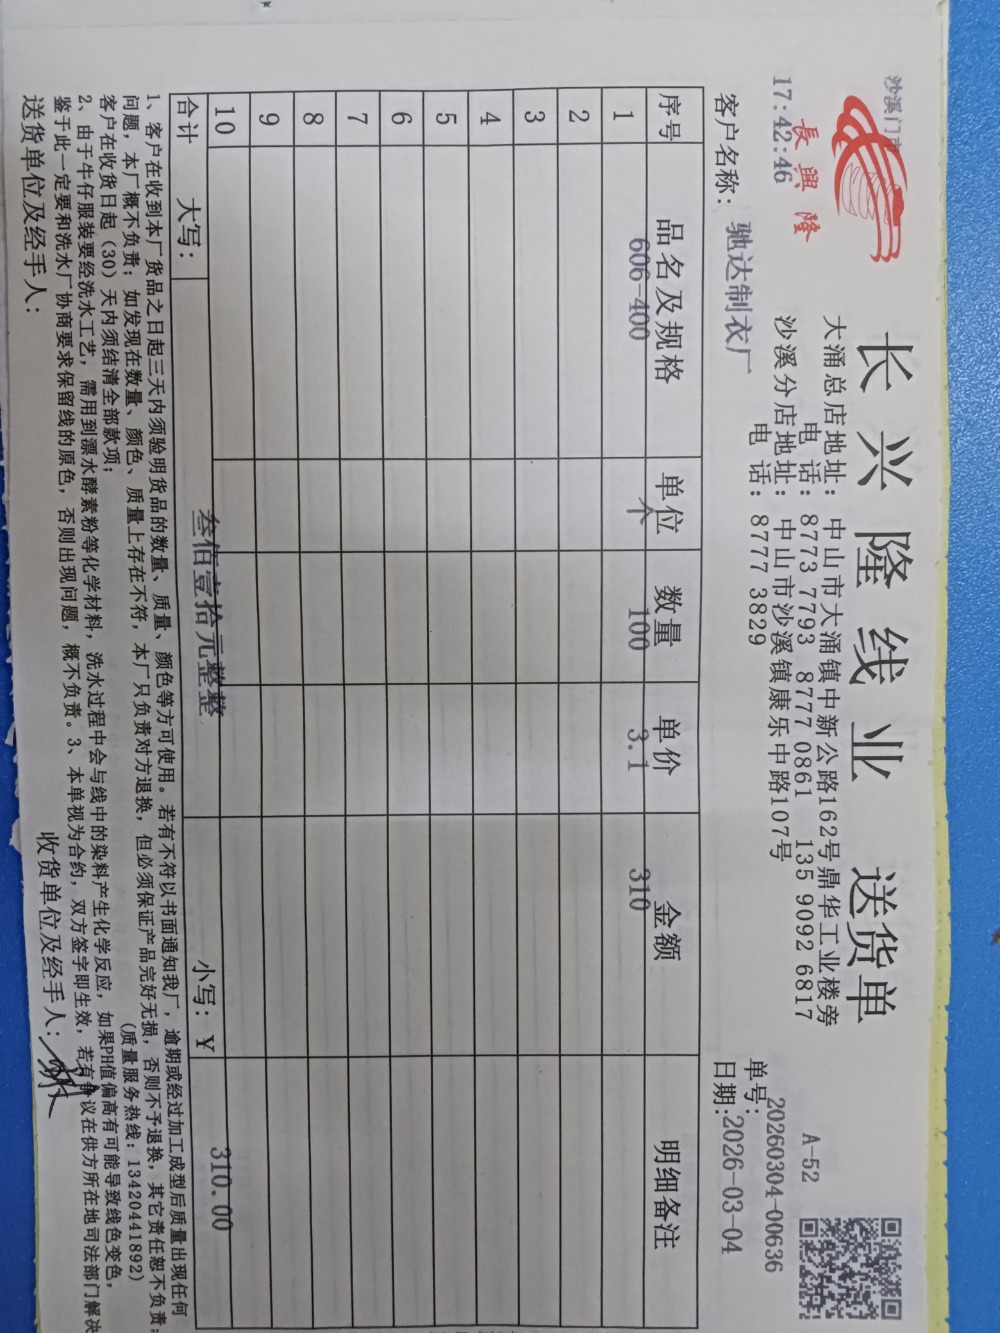 沙溪门市
17:42:46
長興隆
长兴隆线业 送货单
大涌总店地址：中山市大涌镇中新公路162号鼎华工业楼旁
电 话：8773 7793 8777 0861 135 9092 6817
沙溪分店地址：中山市沙溪镇康乐中路107号
电 话：8777 3829
A-52
单号：20260304-00636
日期：2026-03-04
客户名称：驰达制衣厂
序号 品名及规格 单位 数量 单价 金额 明细备注
1 606-400 个 100 3.1 310
2
3
4
5
6
7
8
9
10
合计 大写：叁佰壹拾元整整 小写：¥ 310.00
1、客户在收到本厂货品之日起三天内须验明货品的数量、质量、颜色等方可使用。若有不符以书面通知我厂，逾期或经过加工成型后质量出现任何
问题，本厂概不负责；如发现在数量、颜色、质量上存在不符，本厂只负责对方退换，但必须保证产品完好无损，否则不予退换，其它责任恕不负责；
客户在收货日起（30）天内须结清全部款项； （质量服务热线：13420441892）
2、由于牛仔服装要经洗水工艺，需用到漂水酵素粉等化学材料，洗水过程中会与线中的染料产生化学反应，如果PH值偏高有可能导致线色变色，
鉴于此一定要和洗水厂协商要求保留线的原色，否则出现问题，概不负责。3、本单视为合约，双方签字即生效，若有争议在供方所在地司法部门解决
送货单位及经手人： 收货单位及经手人：